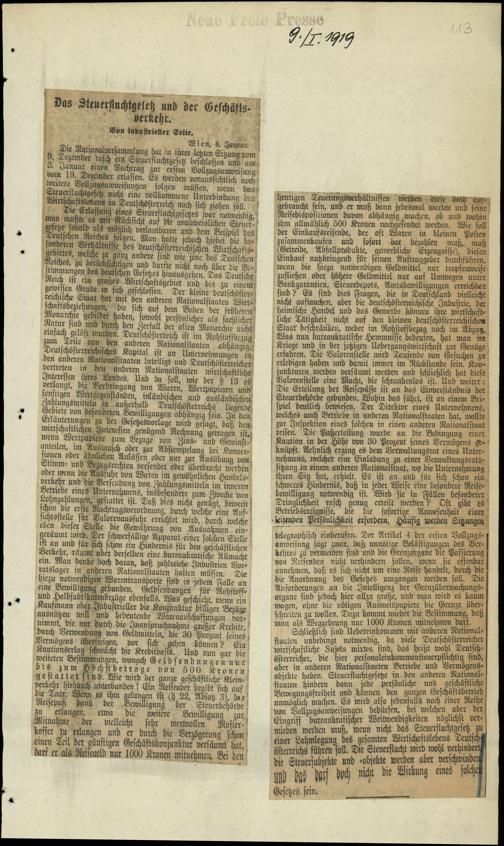 Neue Freie Presse
9./I. 1919
113
Das Steuerfluchtgesetz und der Geschäfts-
verkehr.
Von industrieller Seite.
Wien, 8. Januar.
Die Nationalversammlung hat in ihrer letzten Sitzung vom
9. Dezember rasch ein Steuerfluchtgesetz beschlossen und am
3. Januar einen Nachtrag zur ersten Vollzugsanweisung
vom 19. Dezember erlassen. Es werden voraussichtlich noch
weitere Vollzugsanweisungen folgen müssen, wenn das
Steuerfluchtgesetz nicht eine vollkommene Unterbindung des
Wirtschaftslebens in Deutschösterreich nach sich ziehen soll.
Die Erlassung eines Steuerfluchtgesetzes war notwendig,
man mußte es mit Rücksicht auf die unabweisbare
gesetze sobald als möglich verlautbaren und dem Beispiel des
Deutschen Reiches folgen. Man hatte jedoch hiebei die be-
sonderen Verhältnisse des deutschösterreichischen Wirtschafts-
gebietes, welche zu ganz andere sind wie jene des Deutschen
Reiches, zu berücksichtigen und durfte nicht noch über die Be-
stimmungen des deutschen Gesetzes hinausgehen. Das Deutsche
Reich ist ein großes Wirtschaftsgebiet und bis zu einem
gewissen Grade in sich geschlossen. Der kleine deutschöster-
reichische Staat hat mit den anderen Nationalstaaten Wirt-
schaftsbeziehungen, die sich auf dem Boden der früheren
Monarchie gebildet haben, sowohl persönlicher als sachlicher
Natur sind und durch den Zerfall der alten Monarchie nicht
einfach gelöst wurden. Deutschösterreich ist im Rohstoffbezug
zum Teile von den anderen Nationalstaaten abhängig.
Deutschösterreichisches Kapital ist an Unternehmungen in
den anderen Nationalstaaten beteiligt und Deutschösterreicher
vertreten in den anderen Nationalstaaten wirtschaftliche
Interessen ihres Landes. Und da soll, wie der § 13 es
verlangt, die Verbringung von Waren, Wertpapieren und
sonstigen Wertgegenständen, inländischen und ausländischen
Zahlungsmitteln in außerhalb Deutschösterreichs liegende
Gebiete von besonderen Bewilligungen abhängig sein. In den
Erläuterungen zu der Gesetzvorlage wird gesagt, daß den
wirtschaftlichen Interessen genügend Rechnung getragen ist,
wenn Wertpapiere zum Bezuge von Zins- und Gewinst-
anteilen, im Austausch oder zur Abstempelung bei Konver-
sionen oder ähnlichen Anlässen oder nur zur Ausübung von
Stimm- und Bezugsrechten versendet oder überbracht werden
oder wenn die Ausfuhr von Waren im gewöhnlichen Handels-
verkehr und die Versendung von Zahlungsmitteln im inneren
Betriebe eines Unternehmens, insbesondere zum Zwecke von
Lohnzahlungen, gestattet ist. Daß dies nicht genügt, beweist
schon die erste Nachtragsverordnung, durch welche eine Aus-
sichtsstelle für Valorenausfuhr errichtet wird, durch welche
eben dieser Stelle die Bewährung von Ausnahmen ein-
geräumt wird. Der schwerfällige Apparat einer solchen Stelle
ist an und für sich schon ein Hindernis für den geschäftlichen
Verkehr, räumt aber derselben eine bureaukratische Allmacht
ein. Man denke doch daran, daß zahlreiche Industrien Vor-
ratslager in anderen Nationalstaaten halten müssen. Die
hiezu notwendigen Warentransporte sind in jedem Falle an
eine Bewilligung gebunden, Geldsendungen für Rohstoff-
und Halbfabrikatenbezüge ebenfalls. Was geschieht, wenn ein
Kaufmann oder Industrieller die Konjunktur billiger Bezüge
ausnützen will und bedeutende Warenanschaffungen vor-
nimmt, die nur durch die Inanspruchnahme großer Kredite,
durch Verwendung von Geldmitteln, die 30 Prozent seines
Vermögens übersteigen, vor sich gehen können? Ein
Kautionserlag schwächt die Kreditbasis. Und nun gar die
weiteren Bestimmungen, wonach Geldsendungen nur
bis zum Höchstbetrage von 500 Kronen
gestattet sind. Wie wird der ganze geschäftliche Klein-
verkehr hiedurch unterbunden! Ein Reisender begibt sich auf
die Tour. Wenn es ihm gelungen ist (§ 22, Absatz 3), den
Reisepaß dank der Bewilligung der Steuerbehörde
zu erlangen, etwa die weitere Bewilligung zur
Mitnahme der vielleicht sehr wertvollen Muster-
koffer zu erlangen und er durch die Verzögerung schon
einen Teil der günstigen Geschäftskonjunktur versäumt hat,
darf er als Reisegeld nur 1000 Kronen mitnehmen. Bei den
heutigen Teuerungsverhältnissen werden diese bald auf-
gebraucht sein, und er muß dann jedesmal warten und seine
Reisedispositionen davon abhängig machen, ob und wohin
ihm allmählich 500 Kronen nachgesendet werden. Wie soll
der Einkaufsreisende, der oft Waren in kleinen Posten
zusammenkaufen und sofort bar bezahlen muß, muß
Getreide, Abfallprodukte, gewerbliche Erzeugnisse, diesen
Einkauf nutzbringend für seinen Auftraggeber durchführen,
wenn die hiezu notwendigen Geldmittel nur tropfenweise
zufließen oder höhere Geldmittel nur auf Umwegen unter
Bankgarantien, Steuerdepots, Amtsbewilligungen erreichbar
sind? Es sind das Fragen, die in Deutschland vielleicht
nicht auftauchen, aber die deutschösterreichische Industrie, der
heimische Handel und das Gewerbe können ihre wirtschaft-
liche Tätigkeit nicht auf den kleinen deutschösterreichischen
Staat beschränken, weder im Rohstoffbezug noch im Absatz.
Was nun bureaukratische Hemmnisse bedeuten, hat man im
Kriege und in der jetzigen Uebergangswirtschaft zur Genüge
erfahren. Die Valorenstelle wird Tausende von Gesuchen zu
erledigen haben und damit immer im Rückstande sein. Kon-
junkturen werden versäumt werden und schließlich hat diese
Valorenstelle eine Macht, die schrankenlos ist. Und weiter:
Die Erteilung der Reisepässe ist an das Einverständnis der
Steuerbehörde gebunden. Wohin das führt, ist an einem Bei-
spiel deutlich bewiesen. Der Direktor eines Unternehmens,
welches auch Betriebe in anderen Nationalstaaten hat, wollte
zur Inspektion eines solchen in den anderen Nationalstaat
reisen. Die Paßerteilung wurde an die Bedingung einer
Kaution in der Höhe von 30 Prozent seines Vermögens ge-
knüpft. Aehnlich erging es den Verwaltungsrat einer Unter-
nehmung, welcher eine Einladung zu einer Verwaltungsrats-
sitzung in einem anderen Nationalstaat, wo die Unternehmung
ihren Sitz hat, erhielt. Es ist an und für sich schon ein
schweres Hindernis, daß in jeder Weise eine besondere Reise-
bewilligung notwendig ist. Wird sie in Fällen besonderer
Dringlichkeit rasch genug erteilt werden? Oft gibt es
Betriebsereignisse, die die sofortige Anwesenheit einer
leitenden Persönlichkeit erfordern, Häufig werden Sitzungen
telegraphisch einberufen. Der Artikel 4 der ersten Vollzugs-
anweisung sagt zwar, daß unnötige Belästigungen des Ver-
kehres zu vermeiden sind und die Grenzorgane die Passierung
von Reisenden nicht verhindern sollen, wenn sie offenbar
annehmen, daß es sich nicht um Fälle handelt, durch die
die Anordnung des Gesetzes umgangen werden soll. Die
Anforderungen an die Intelligenz der Grenzüberwachungs-
organe sind jedoch hier allzu große, und man wird es kaum
wagen, ohne die nötigen Ausweispapiere die Grenze über-
schreiten zu wollen. Dazu kommt wieder die Bestimmung, daß
man als Wegzehrung nur 1000 Kronen mitnehmen darf.
Schließlich sind Uebereinkommen mit anderen National-
staaten unbedingt notwendig, da viele Deutschösterreicher
wirtschaftliche Sujets mixtes sind, das heißt wohl Deutsch-
österreicher, die hier personaleinkommensteuerpflichtig sind,
aber in anderen Nationalstaaten Betriebe und Vermögens-
objekte haben. Steuerfluchtgesetze in den anderen National-
staaten hindern dann jede persönliche und geschäftliche
Bewegungsfreiheit und können den ganzen Geschäftsbetrieb
unmöglich machen. Es wird also jedenfalls noch einer Reihe
von Vollzugsanweisungen bedürfen, bei welchen aber der
Eingriff bureaukratischer Weitwendigkeiten möglichst ver-
mieden werden muß, wenn nicht das Steuerfluchtgesetz zu
einer Lahmlegung des gesamten Wirtschaftslebens Deutsch-
österreichs führen soll. Die Steuerflucht wird wohl verhindert,
die Steuersubjekte und -objekte werden aber verschwinden
und das darf doch nicht die Wirkung eines solchen
Gesetzes sein.